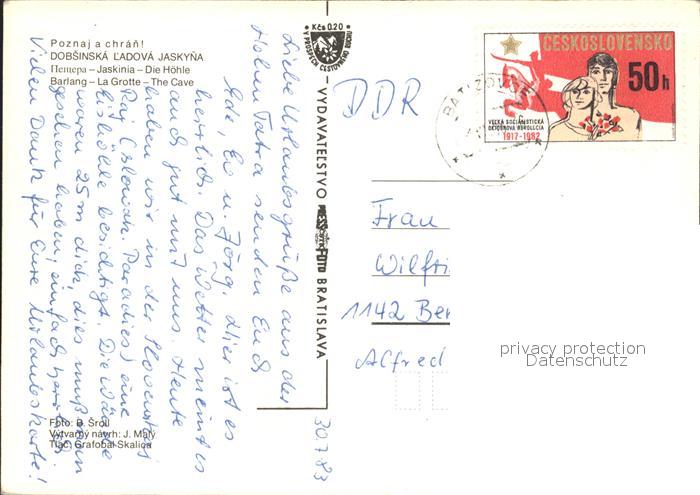 Poznaj a chráň!
DOBŠINSKÁ ĽADOVÁ JASKYŇA
Пещера – Jaskinia – Die Höhle
Barlang – La Grotte – The Cave
Kčs 0,20
V PROSPECH CESTOVNÉHO RUCHU
VYDAVATEĽSTVO PRESSFOTO BRATISLAVA
Liebe Urlaubsgrüße aus der
Hohen Tatra senden Euch
Ede, Ev u. Jörg. Hier ist es
herrlich. Das Wetter meint es
auch gut mit uns. Heute
haben wir in der Slovenský
Raj (Slowak. Paradies) eine
Eishöhle besichtigt. Die Wände
waren 25 m dick, dies muß man
gesehen haben, einfach herrlich.
Vielen Dank für Eure Urlaubskarte!
30.7.83
Foto: B. Šroll
Výtvarný návrh: J. Malý
Tlač: Grafobal Skalica
ČESKOSLOVENSKO
50 h
VEĽKÁ SOCIALISTICKÁ
OKTÓBROVÁ REVOLÚCIA
1917-1982
BATIZOVCE
DDR
Frau
Wilfri
1142 Ber
Alfred
privacy protection
Datenschutz